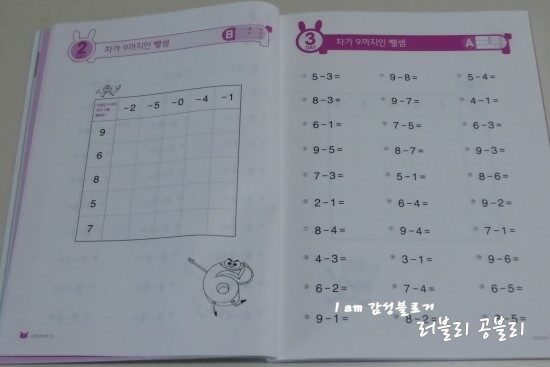 2 DAY 차가 9까지인 뺄셈 B
-2 -5 -0 -4 -1
9
6
8
5
7
6
3 DAY 차가 9까지인 뺄셈 A
5-3= 9-8= 5-4=
8-3= 9-7= 4-1=
6-1= 7-5= 6-3=
9-5= 8-7= 9-3=
7-3= 5-1= 8-6=
2-1= 6-4= 9-2=
8-4= 9-4= 7-1=
4-3= 3-1= 9-6=
6-2= 7-4= 6-5=
9-1= 8-2=
I am 감성블로거
러블리 공블리